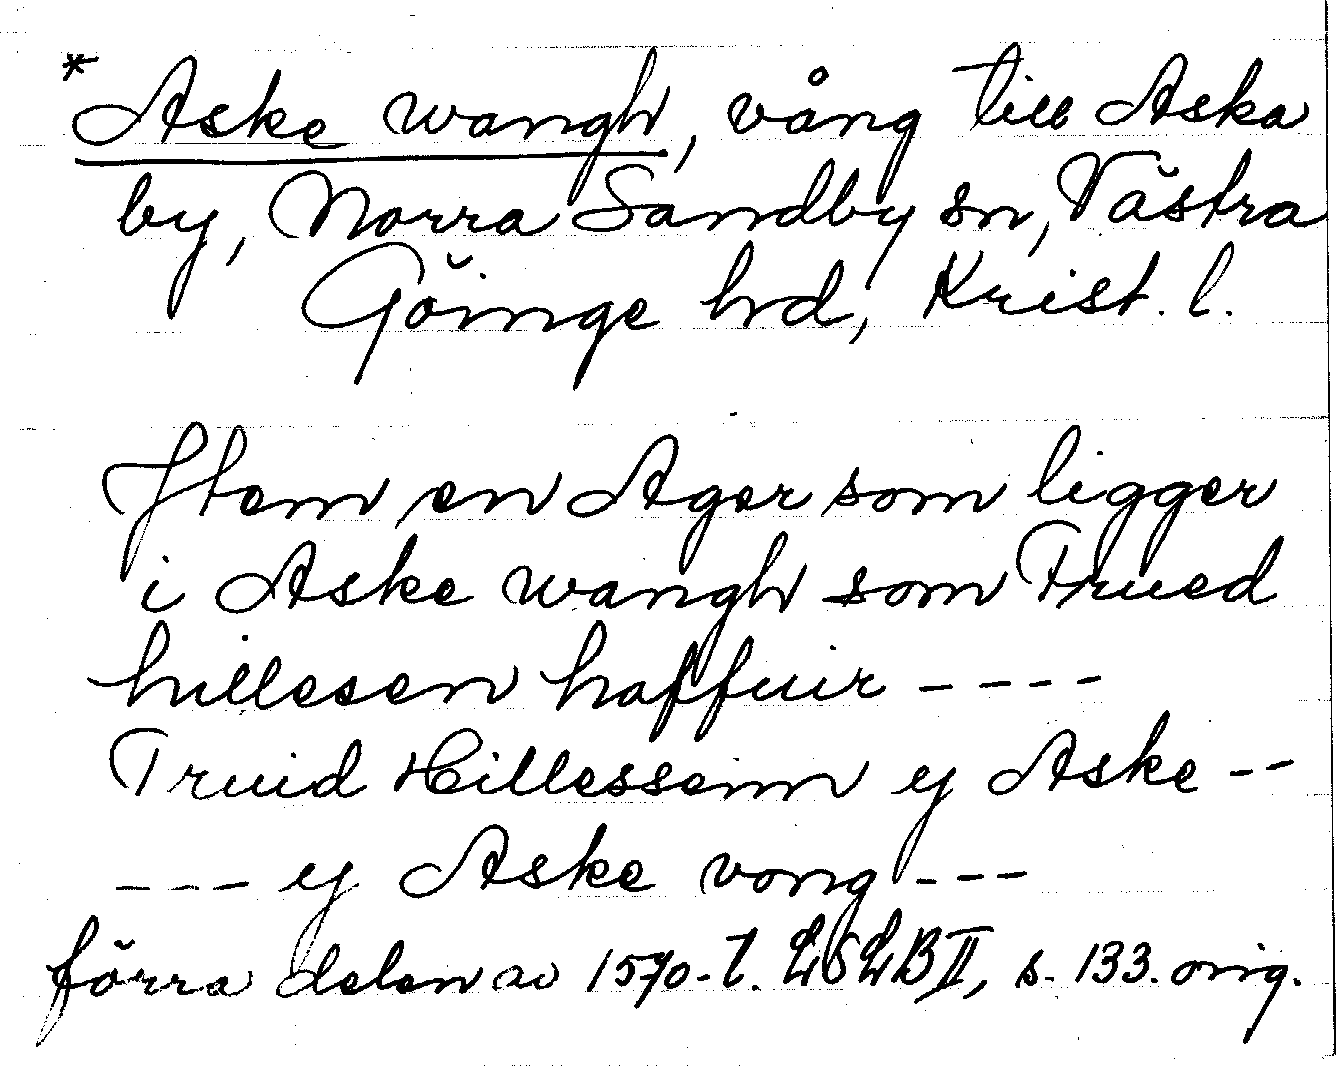 *Aske wangh, vång till Aska
by, Norra Sandby sn, Västra
Göinge hrd, Krist. l.
Jtem en Ager som ligger
i Aske wangh som Trued
hillesen haffuir ----
Truid Hillessenn ej Aske --
--- ej Aske vong ---
förra delen av 1570-t. LSLB II, s. 133. orig.